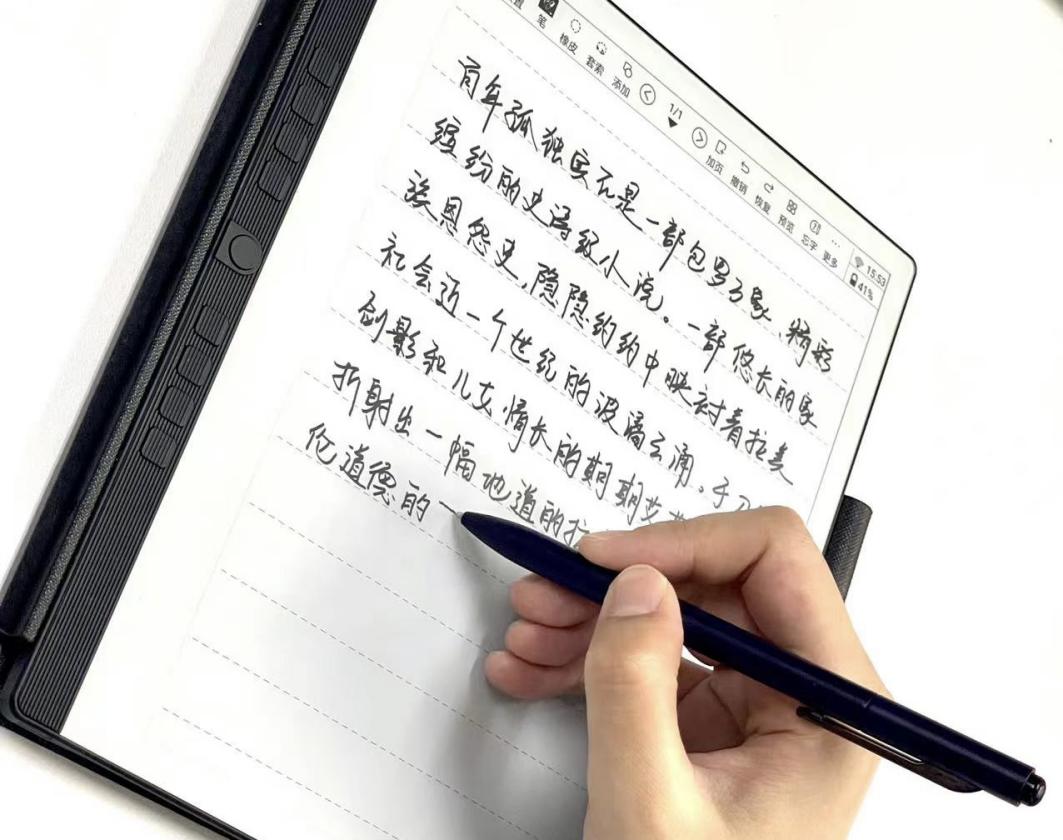 笔
橡皮
套索
添加
1/1
加页
撤销
恢复
预览
忘字
更多
15:53
41%
百年孤独实在是一部包罗万象、精彩
缤纷的史诗级小说。一部悠长的家
族恩怨史,隐隐约约中映衬着拉美
社会近一个世纪的波涌云涌。手刀
剑影和儿女情长的期期艾艾
折射出一幅地道的拉
伦道德的